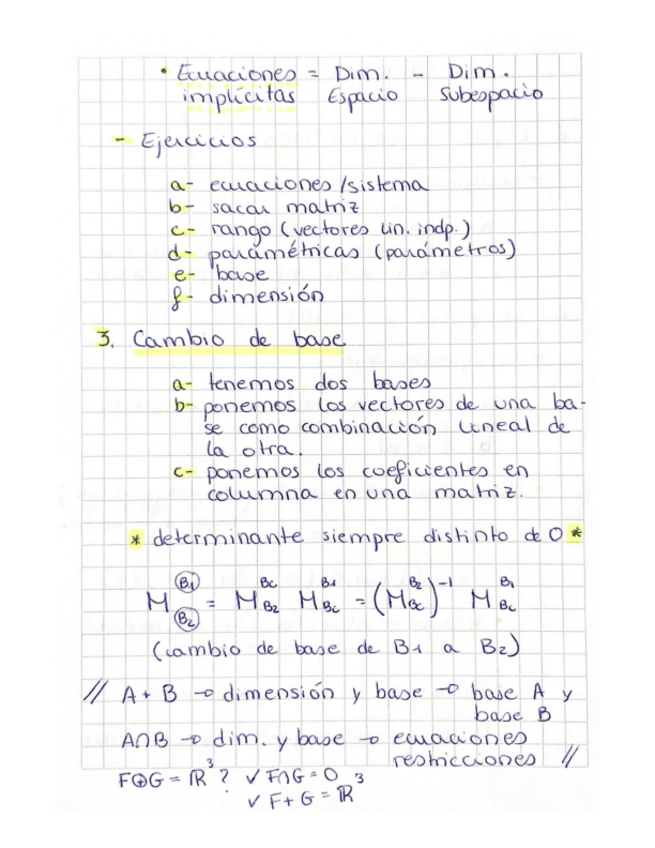 • Ecuaciones = Dim. - Dim.
implícitas Espacio Subespacio
- Ejercicios
a- ecuaciones/sistema
b- sacar matriz
c- rango (vectores lin. indp.)
d- paramétricas (parámetros)
e- base
f- dimensión
3. Cambio de base
a- tenemos dos bases
b- ponemos los vectores de una ba-
se como combinación lineal de
la otra.
c- ponemos los coeficientes en
columna en una matriz.
* determinante siempre distinto de 0 *
M^{B1}_{B2} = M^{Bc}_{B2} M^{B1}_{Bc} = (M^{B2}_{Bc})^{-1} M^{B1}_{Bc}
(cambio de base de B1 a B2)
// A + B → dimensión y base → base A y
base B
A∩B → dim. y base → ecuaciones
restricciones //
F⊕G = ℝ³ ? ✓ F∩G = 0
✓ F + G = ℝ³